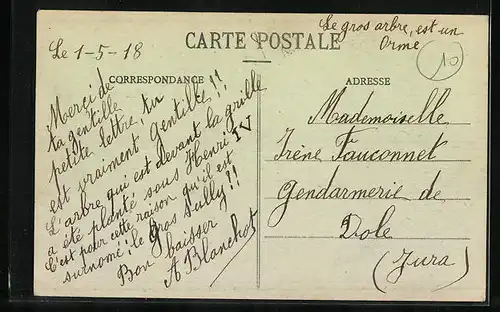 Le gros arbre, est un
Orme
Le 1-5-18
CARTE POSTALE
10
CORRESPONDANCE
Merci de
ta gentille
petite lettre, tu
est vraiment gentille!!
L'arbre qui est devant la grille
a été planté sous Henri IV
C'est pour cette raison qu'il est
surnomé; le gros Sully!!
Bon baiser
A Blanchot
ADRESSE
Mademoiselle
Irène Fauconnet
Gendarmerie de
Dole
(Jura)